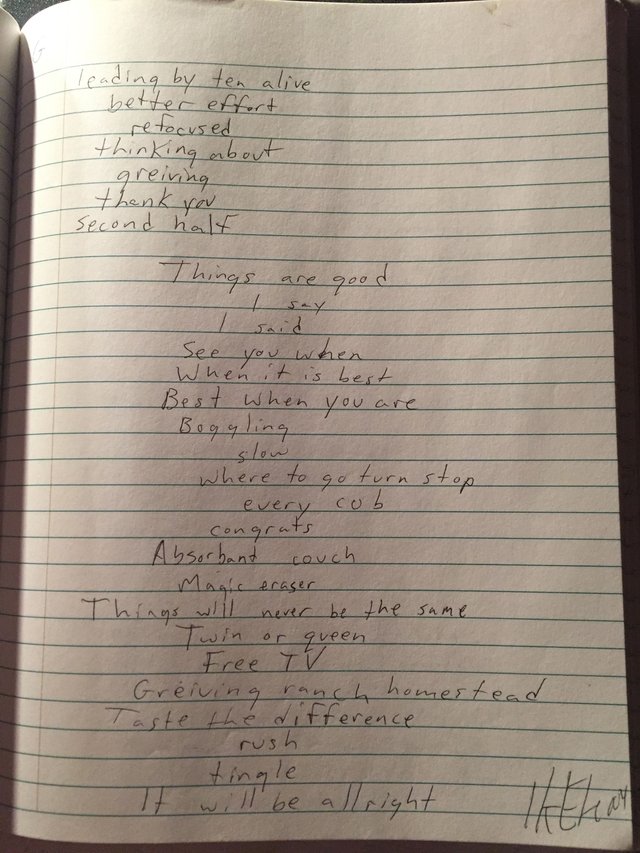 leading by ten alive
better effort
refocused
thinking about
greiving
thank you
second half
Things are good
I say
I said
See you when
When it is best
Best when you are
Boggling
slow
Where to go turn stop
every cub
congrats
Absorbant couch
Magic eraser
Things will never be the same
Twin or queen
Free TV
Greiving ranch homestead
Taste the difference
rush
tingle
It will be allright